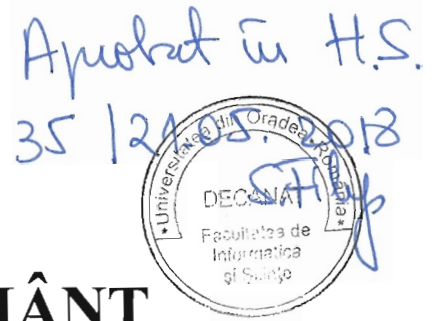 Aprobat în H.S.
35 / 21.05. 2018
*Universitatea din Oradea, România*
DECANAT
Facultatea de
Informatica
și Științe
MÂNT